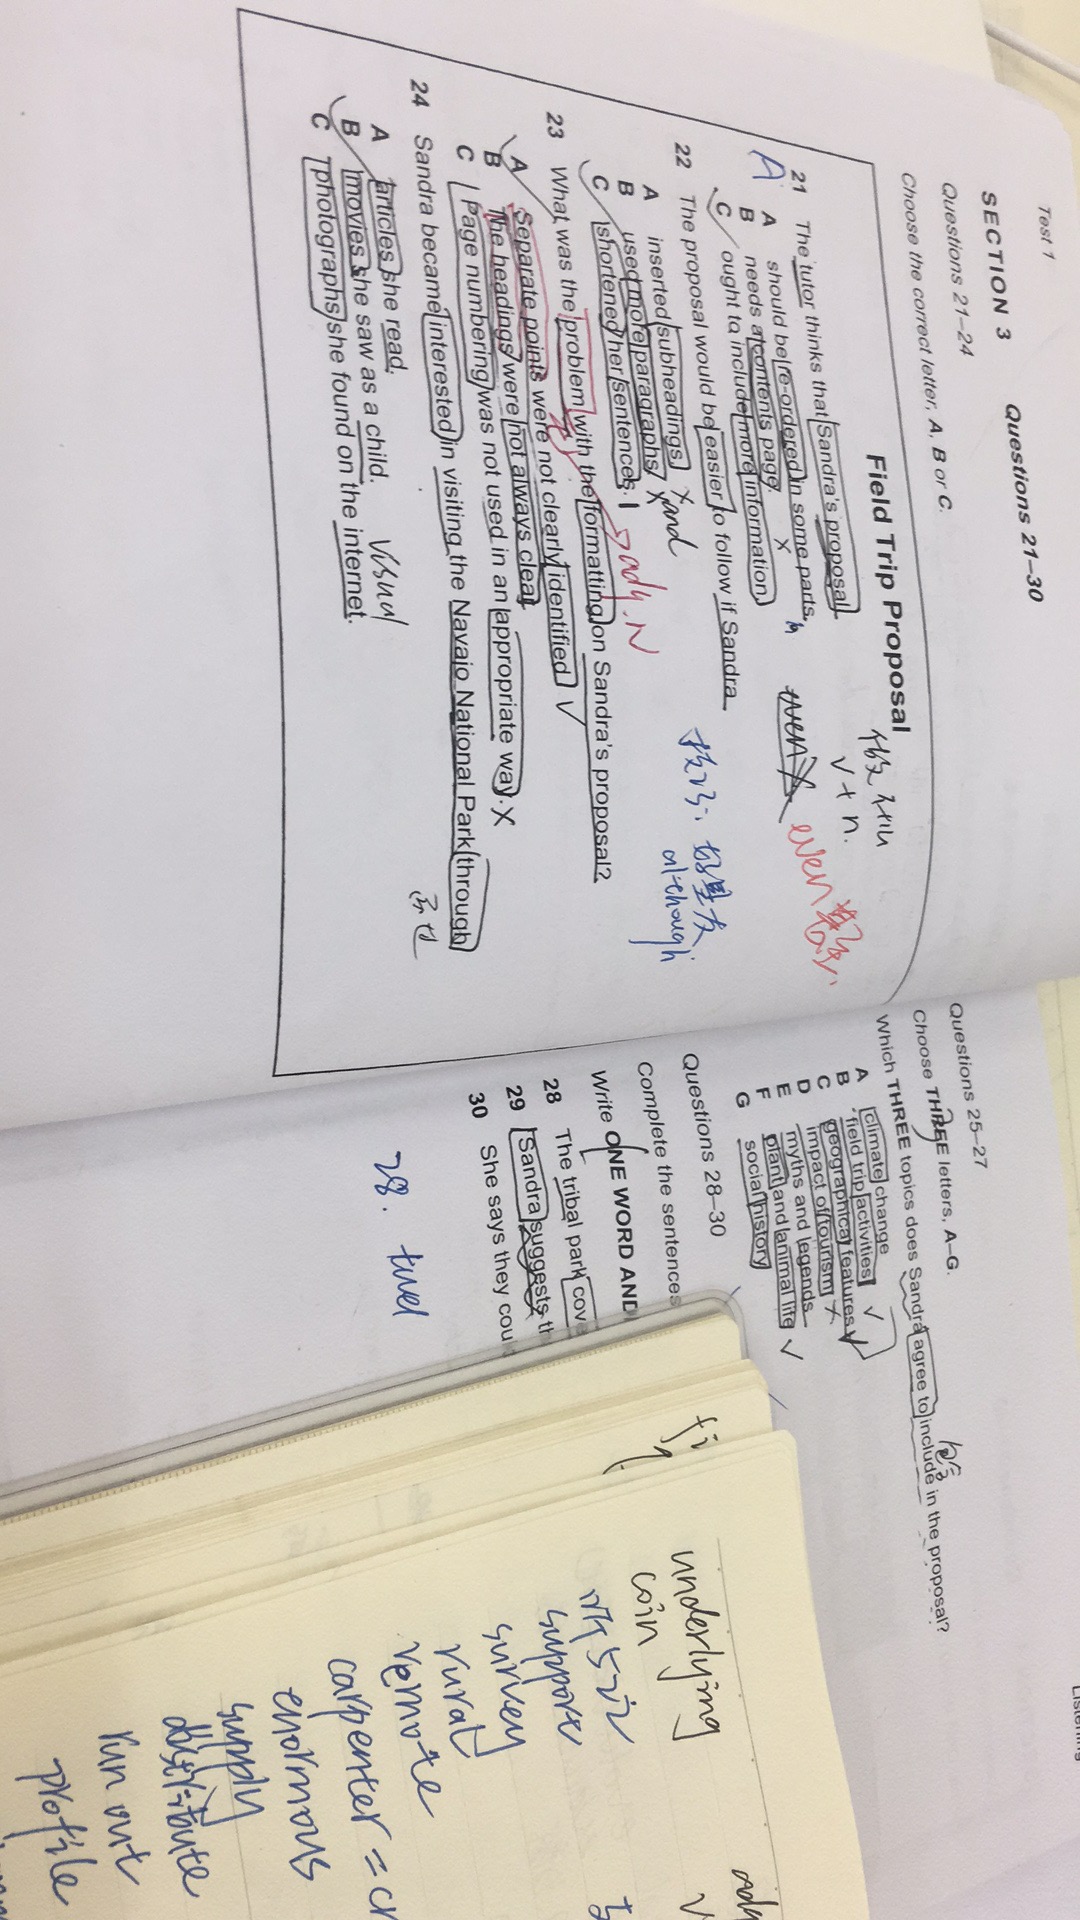 Test 1
SECTION 3 Questions 21–30
Questions 21–24
Choose the correct letter, A, B or C.
Field Trip Proposal
v + n.
21 The tutor thinks that Sandra's proposal
A
A should be re-ordered in some parts.
B needs a contents page.
C ought to include more information.
even
22 The proposal would be easier to follow if Sandra
A inserted subheadings. X and
B used more paragraphs. X
C shortened her sentences.
although
adj. N
23 What was the problem with the formatting on Sandra's proposal?
A Separate points were not clearly identified. √
B The headings were not always clear.
C Page numbering was not used in an appropriate way. X
24 Sandra became interested in visiting the Navajo National Park through
A articles she read.
B movies she saw as a child. visual
C photographs she found on the internet.
Listening
Questions 25–27
Choose THREE letters, A–G.
Which THREE topics does Sandra agree to include in the proposal?
A climate change
B field trip activities √
C geographical features √
D impact of tourism X
E myths and legends
F plant and animal life √
G social history
Questions 28–30
Complete the sentences
Write ONE WORD AND
28 The tribal park cove
29 Sandra suggests th
30 She says they coul
28.
underlying
coin
support
survey
rural
remote
carpenter =
enormous
supply
distribute
run out
profile